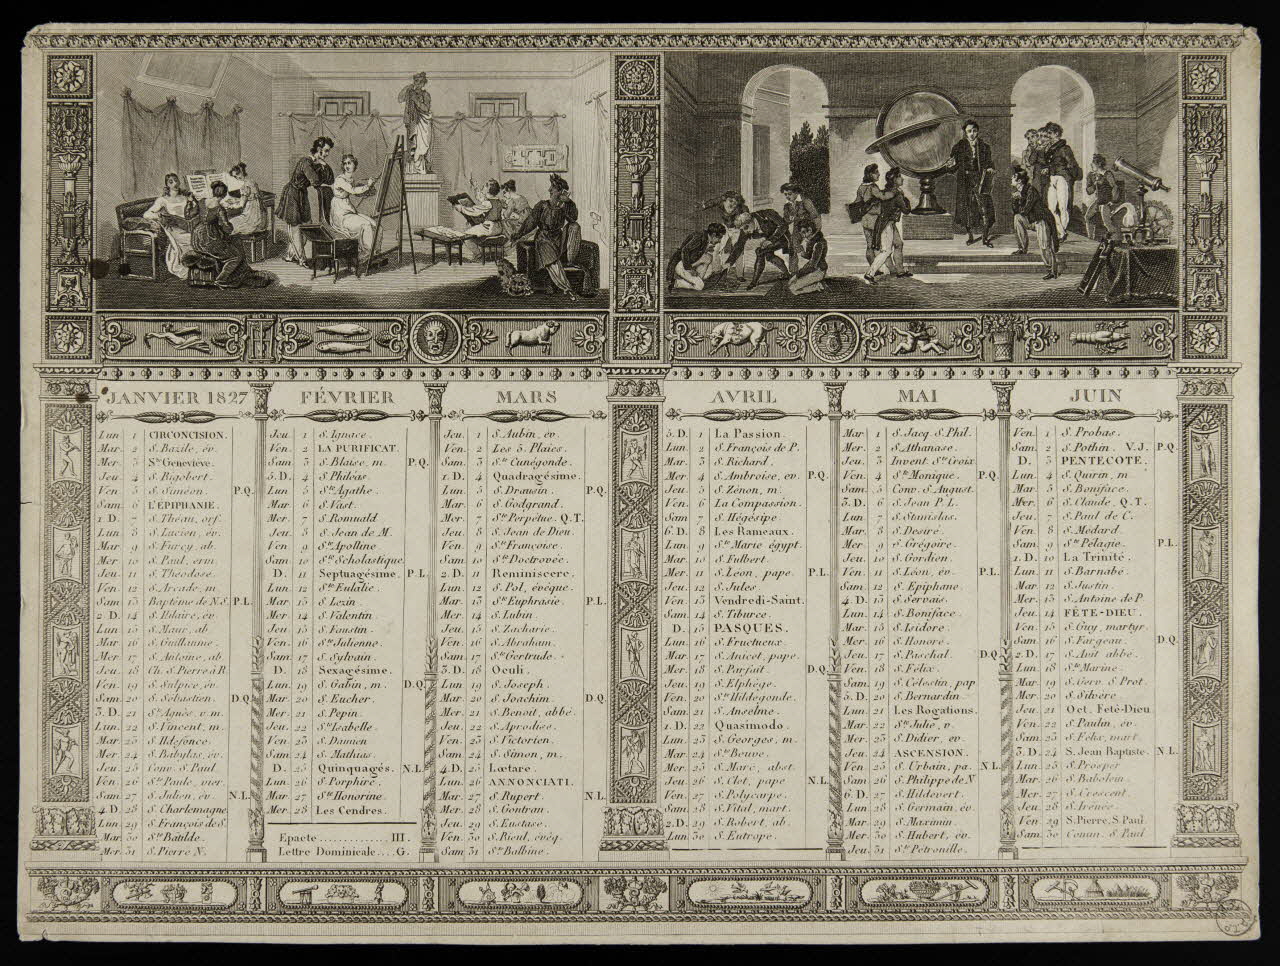 JANVIER 1827
Lun. 1 CIRCONCISION.
Mar. 2 S. Bazile, év.
Mer. 3 Ste Geneviève.
Jeu. 4 S. Rigobert.
Ven. 5 S. Siméon. P.Q.
Sam. 6 L'EPIPHANIE.
1. D. 7 S. Théau, orf.
Lun. 8 S. Lucien, év.
Mar. 9 S. Furcy, ab.
Mer. 10 S. Paul, erm.
Jeu. 11 S. Théodose.
Ven. 12 S. Arcade, m.
Sam. 13 Baptême de N.S. P.L.
2. D. 14 S. Hilaire, év.
Lun. 15 S. Maur, ab.
Mar. 16 S. Guillaume.
Mer. 17 S. Antoine, ab.
Jeu. 18 Ch. S. Pierre à R.
Ven. 19 S. Sulpice, év.
Sam. 20 S. Sébastien. D.Q.
3. D. 21 Ste Agnès, v. m.
Lun. 22 S. Vincent, m.
Mar. 23 S. Ildefonce.
Mer. 24 S. Babylas, év.
Jeu. 25 Conv. S. Paul.
Ven. 26 Ste Paule, vier.
Sam. 27 S. Julien, év. N.L.
4. D. 28 S. Charlemagne.
Lun. 29 S. François de S.
Mar. 30 Ste Batilde.
Mer. 31 S. Pierre N.
FÉVRIER
Jeu. 1 S. Ignace.
Ven. 2 LA PURIFICAT.
Sam. 3 S. Blaise, m. P.Q.
5. D. 4 S. Philéas.
Lun. 5 Ste Agathe.
Mar. 6 S. Vast.
Mer. 7 S. Romuald.
Jeu. 8 S. Jean de M.
Ven. 9 Ste Apolline.
Sam. 10 Ste Scholastique.
D. 11 Septuagésime. P.L.
Lun. 12 Ste Eulalie.
Mar. 13 S. Lezin.
Mer. 14 S. Valentin.
Jeu. 15 S. Faustin.
Ven. 16 Ste Julienne.
Sam. 17 S. Sylvain.
D. 18 Sexagésime.
Lun. 19 S. Gabin, m. D.Q.
Mar. 20 S. Eucher.
Mer. 21 S. Pepin.
Jeu. 22 Ste Isabelle.
Ven. 23 S. Damien.
Sam. 24 S. Mathias.
D. 25 Quinquagés. N.L.
Lun. 26 S. Porphire.
Mar. 27 Ste Honorine.
Mer. 28 Les Cendres.
Epacte .............. III.
Lettre Dominicale .... G.
MARS
Jeu. 1 S. Aubin, év.
Ven. 2 Les 5. Plaies.
Sam. 3 Ste Cunégonde.
1. D. 4 Quadragésime.
Lun. 5 S. Drausin. P.Q.
Mar. 6 S. Godgrand.
Mer. 7 Ste Perpétue. Q.T.
Jeu. 8 S. Jean de Dieu.
Ven. 9 Ste Françoise.
Sam. 10 Ste Doctrovée.
2. D. 11 Reminiscere.
Lun. 12 S. Pol, évêque.
Mar. 13 Ste Euphrasie. P.L.
Mer. 14 S. Lubin.
Jeu. 15 S. Zacharie.
Ven. 16 S. Abraham.
Sam. 17 Ste Gertrude.
3. D. 18 Oculi.
Lun. 19 S. Joseph.
Mar. 20 S. Joachim. D.Q.
Mer. 21 S. Benoit, abbé.
Jeu. 22 S. Aprodise.
Ven. 23 S. Victorien.
Sam. 24 S. Simon, m.
4. D. 25 Lœtare.
Lun. 26 ANNONCIATI.
Mar. 27 S. Rupert. N.L.
Mer. 28 S. Gontran.
Jeu. 29 S. Eustase.
Ven. 30 S. Rieul, évêq.
Sam. 31 Ste Balbine.
AVRIL
5. D. 1 La Passion.
Lun. 2 S. François de P.
Mar. 3 S. Richard.
Mer. 4 S. Ambroise, ev. P.Q.
Jeu. 5 S. Zénon, m.
Ven. 6 La Compassion.
Sam. 7 S. Hégésipe.
6. D. 8 Les Rameaux.
Lun. 9 Ste Marie égypt.
Mar. 10 S. Fulbert.
Mer. 11 S. Léon, pape. P.L.
Jeu. 12 S. Jules.
Ven. 13 Vendredi-Saint.
Sam. 14 S. Tiburce.
D. 15 PASQUES.
Lun. 16 S. Fructueux.
Mar. 17 S. Anicet, pape.
Mer. 18 S. Parfait. D.Q.
Jeu. 19 S. Elphège.
Ven. 20 Ste Hildegonde.
Sam. 21 S. Anselme.
1. D. 22 Quasimodo.
Lun. 23 S. Georges, m.
Mar. 24 Ste Beuve.
Mer. 25 S. Marc, abst.
Jeu. 26 S. Clet, pape. N.L.
Ven. 27 S. Polycarpe.
Sam. 28 S. Vital, mart.
2. D. 29 S. Robert, ab.
Lun. 30 S. Eutrope.
MAI
Mar. 1 S. Jacq. S. Phil.
Mer. 2 S. Athanase.
Jeu. 3 Invent. Ste Croix.
Ven. 4 Ste Monique. P.Q.
Sam. 5 Conv. S. August.
3. D. 6 S. Jean P. L.
Lun. 7 S. Stanislas.
Mar. 8 S. Desiré.
Mer. 9 S. Grégoire.
Jeu. 10 S. Gordien.
Ven. 11 S. Léon, év. P.L.
Sam. 12 S. Epiphane.
4. D. 13 S. Servais.
Lun. 14 S. Boniface.
Mar. 15 S. Isidore.
Mer. 16 S. Honoré.
Jeu. 17 S. Paschal. D.Q.
Ven. 18 S. Félix.
Sam. 19 S. Célestin, pap.
5. D. 20 S. Bernardin.
Lun. 21 Les Rogations.
Mar. 22 Ste Julie, v.
Mer. 23 S. Didier, ev.
Jeu. 24 ASCENSION.
Ven. 25 S. Urbain, pa. N.L.
Sam. 26 S. Philippe de N.
6. D. 27 S. Hildevert.
Lun. 28 S. Germain, év.
Mar. 29 S. Maximin.
Mer. 30 S. Hubert, ev.
Jeu. 31 Ste Pétronille.
JUIN
Ven. 1 S. Probas.
Sam. 2 S. Pothin. V.J. P.Q.
D. 3 PENTECOTE.
Lun. 4 S. Quirin, m.
Mar. 5 S. Boniface.
Mer. 6 S. Claude. Q.T.
Jeu. 7 S. Paul de C.
Ven. 8 S. Médard.
Sam. 9 Ste Pélagie. P.L.
1. D. 10 La Trinité.
Lun. 11 S. Barnabé.
Mar. 12 S. Justin.
Mer. 13 S. Antoine de P.
Jeu. 14 FÊTE-DIEU.
Ven. 15 S. Guy, martyr.
Sam. 16 S. Fargeau. D.Q.
2. D. 17 S. Avit abbé.
Lun. 18 Ste Marine.
Mar. 19 S. Gerv. S. Prot.
Mer. 20 S. Silvère.
Jeu. 21 Oct. Fete-Dieu.
Ven. 22 S. Paulin, év.
Sam. 23 S. Félix, mart.
3. D. 24 S. Jean Baptiste. N.L.
Lun. 25 S. Prosper.
Mar. 26 S. Babolein.
Mer. 27 S. Crescent.
Jeu. 28 S. Irénée.
Ven. 29 S. Pierre, S. Paul.
Sam. 30 Comm. S. Paul.